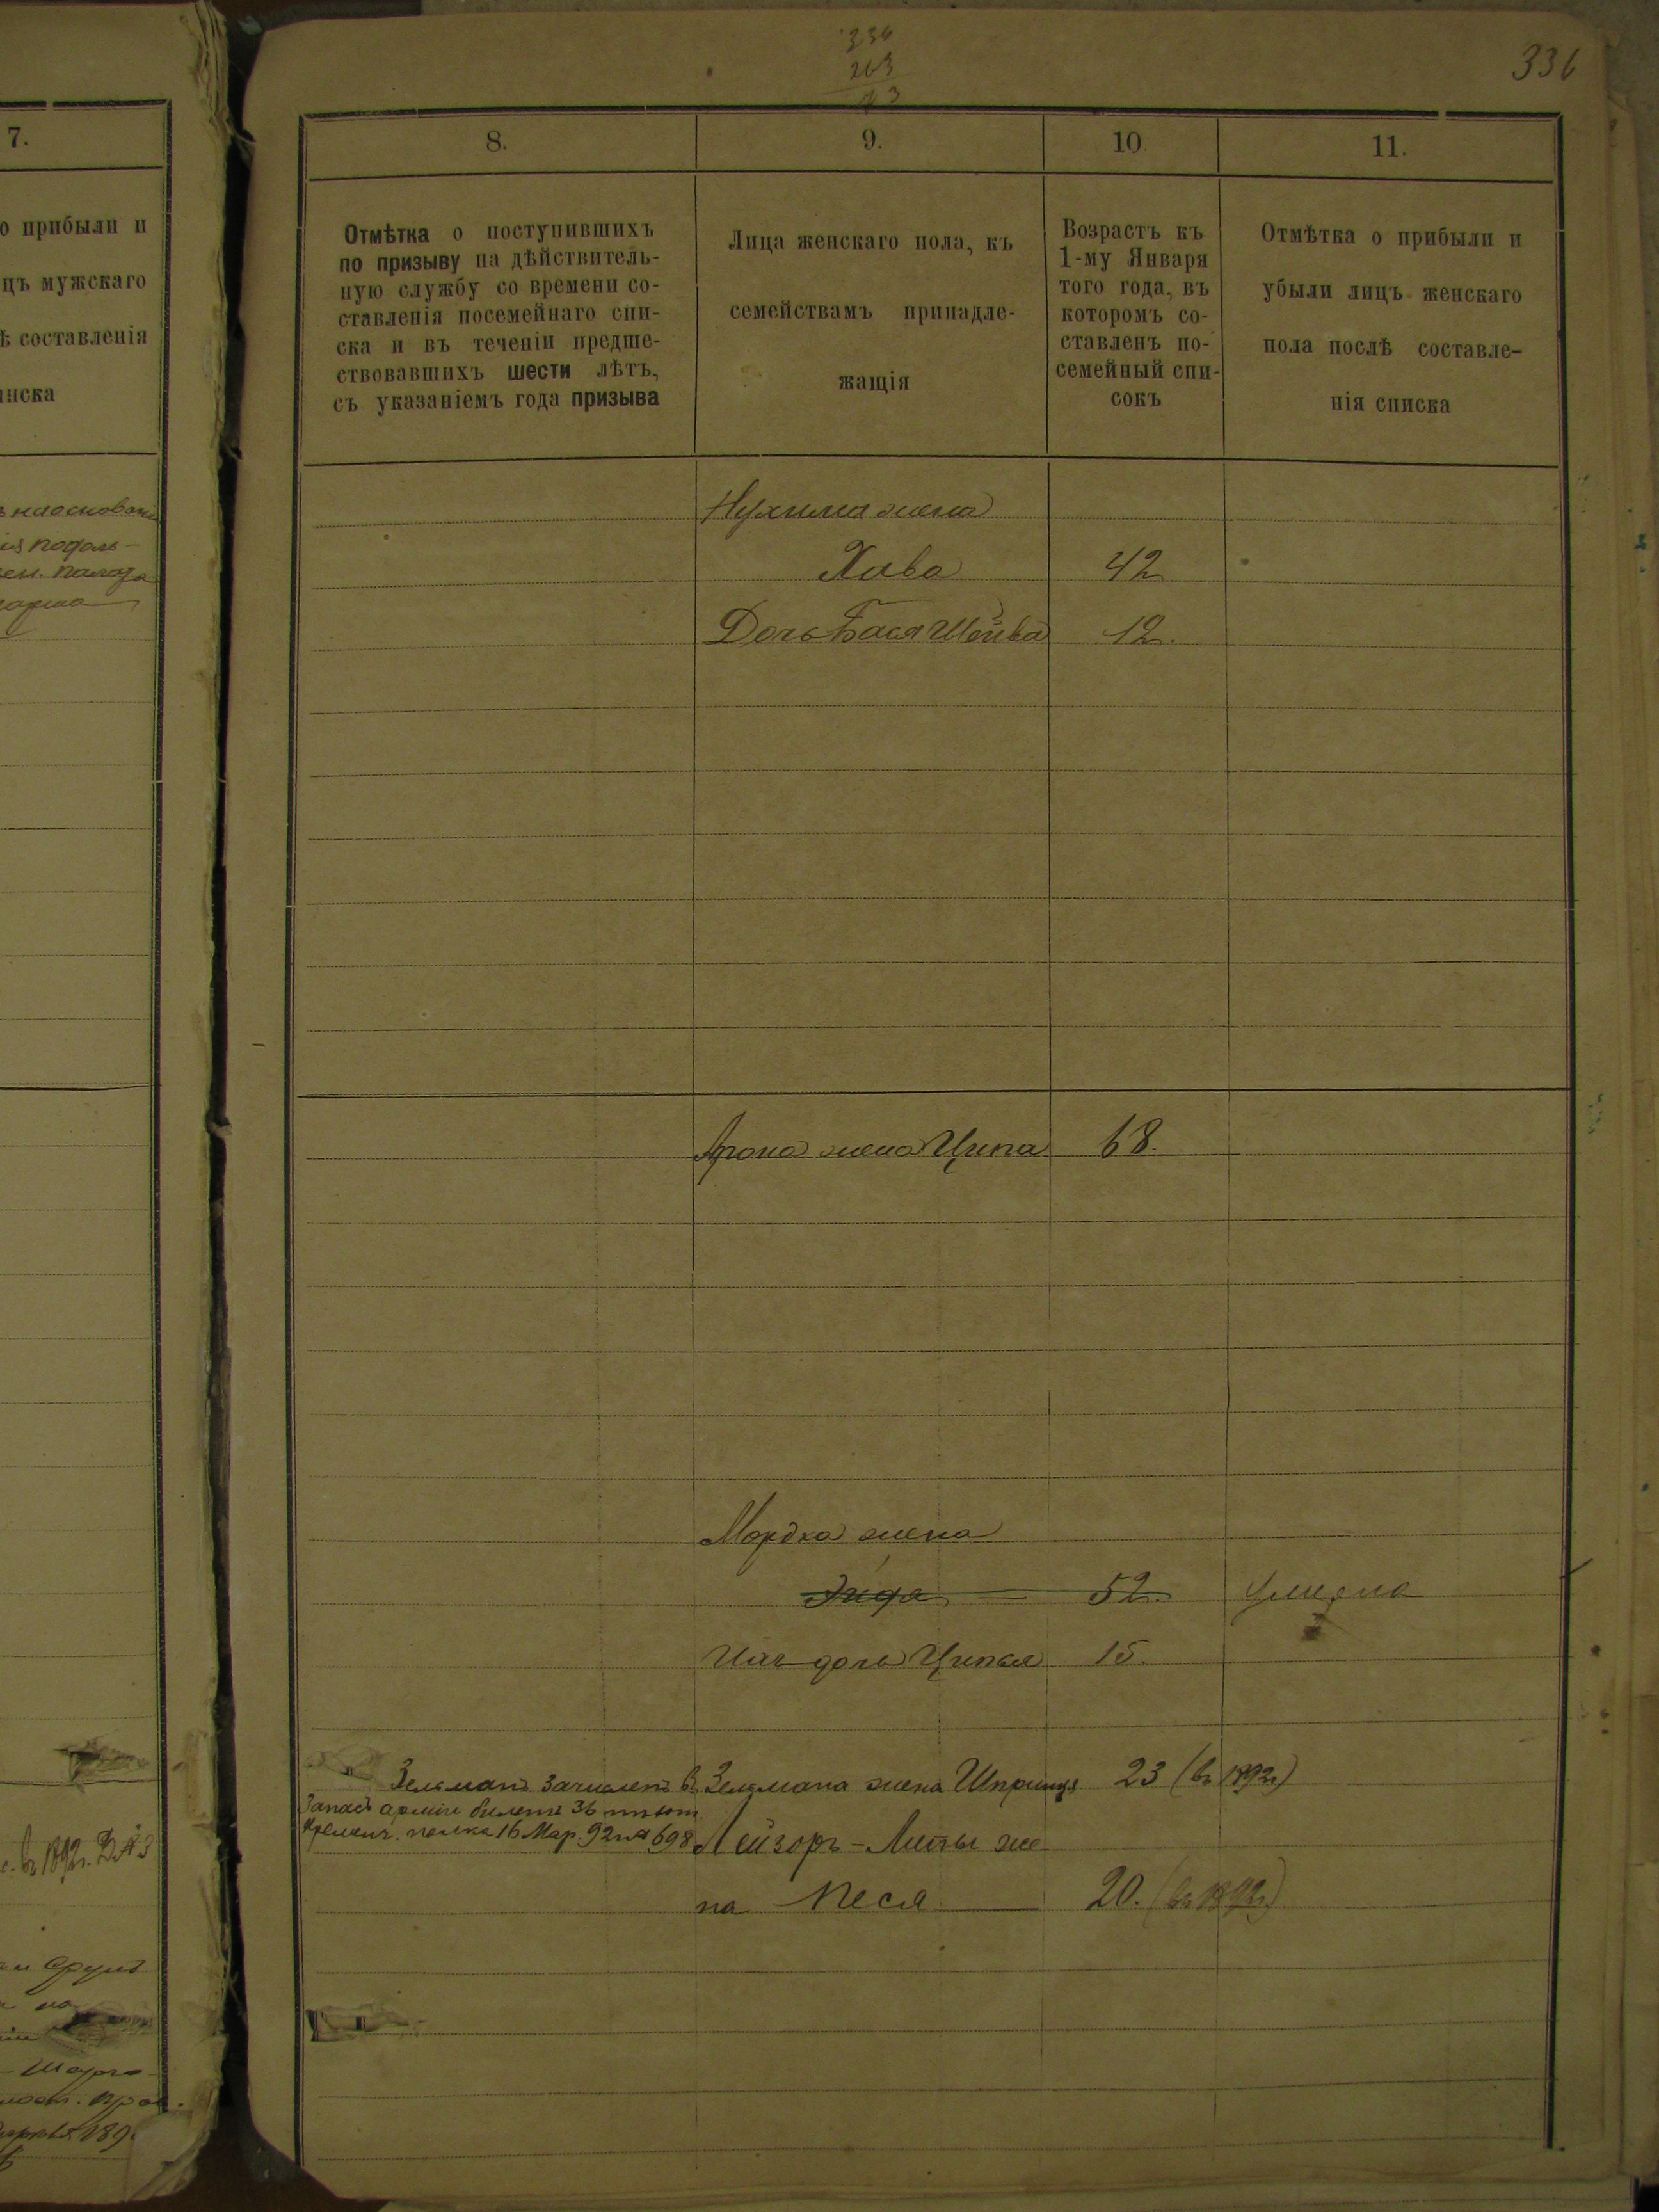 336
334
263
73
7.
о прибыли и
цъ мужскаго
ѣ составленія
писка
подоль-
палаты
8.
9.
10.
11.
Отмѣтка о поступившихъ
по призыву на дѣйствитель-
ную службу со времени со-
ставленія посемейнаго спи-
ска и въ теченіи предше-
ствовавшихъ шести лѣтъ,
съ указаніемъ года призыва
Лица женскаго пола, къ
семействамъ принадле-
жащія
Возрастъ къ
1-му Января
того года, въ
которомъ со-
ставленъ по-
семейный спи-
сокъ
Отмѣтка о прибыли и
убыли лицъ женскаго
пола послѣ составле-
нія списка
Нухима жена
Хава 42
Дочь Бася Шейва 12.
Арона жена Ципа 68.
Мордка жена
52. умерла
дочь Ципа 15.
Зельманъ зачисленъ в
Запасъ арміи билетъ 36 пѣхот.
Кременч. полка 16 Мар. 92 г. № 698
Зельмана жена Шпринця 23 (въ 1892г)
Лейзоръ-Липы же
на Песя 20. (въ 1892г)
въ 1892г. № 3